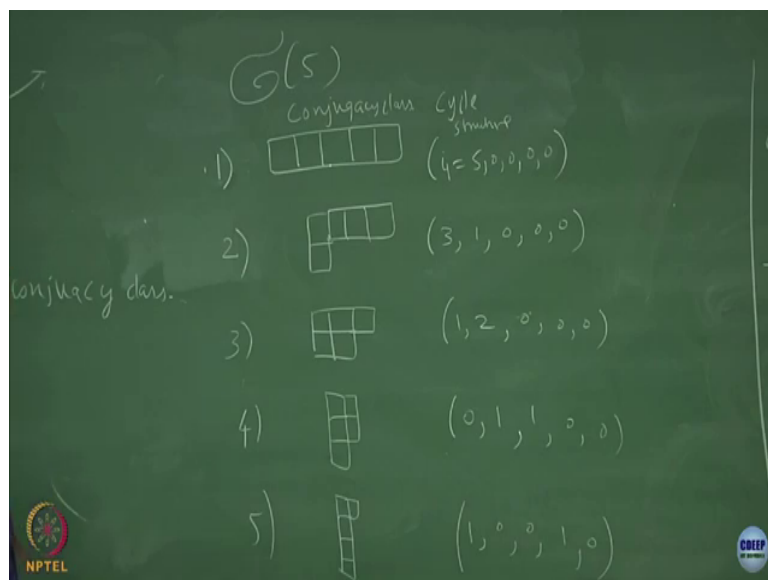 𝔖(5)
Conjugacy class Cycle structure
1) (i₁ = 5, 0, 0, 0, 0)
2) (3, 1, 0, 0, 0)
conjuacy class.
3) (1, 2, 0, 0, 0)
4) (0, 1, 1, 0, 0)
5) (1, 0, 0, 1, 0)
NPTEL
CDEEP